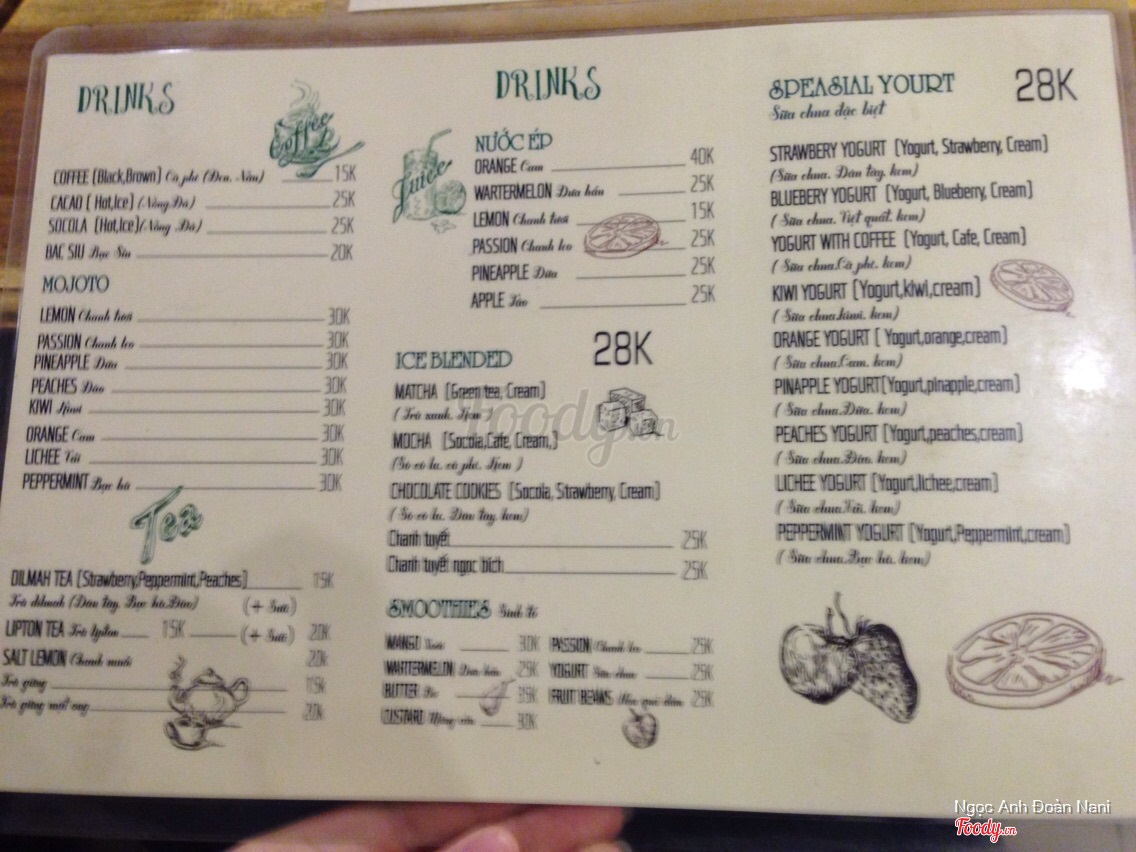 DRINKS
Coffee
COFFEE (Black,Brown) Cà phê (Đen, Nâu) 15K
CACAO ( Hot,Ice) (Nóng Đá) 25K
SOCOLA (Hot,Ice)(Nóng Đá) 25K
BAC SIU Bạc Sỉu 20K
MOJOTO
LEMON Chanh tươi 30K
PASSION Chanh leo 30K
PINEAPPLE Dứa 30K
PEACHES Đào 30K
KIWI Kiwi 30K
ORANGE Cam 30K
LICHEE Vải 30K
PEPPERMINT Bạc hà 30K
Tea
DILMAH TEA (Strawberry,Peppermint,Peaches) 15K
Trà dilmah (Dâu tây, Bạc hà,Đào) (+ 5k)
LIPTON TEA Trà lipton 15K (+ 5k) 20K
SALT LEMON Chanh muối 20k
Trà gừng 15k
Trà gừng mật ong 20k
DRINKS
Juice
NƯỚC ÉP
ORANGE Cam 40K
WARTERMELON Dưa hấu 25K
LEMON Chanh tươi 15K
PASSION Chanh leo 25K
PINEAPPLE Dứa 25K
APPLE Táo 25K
ICE BLENDED 28K
MATCHA (Green tea, Cream)
( Trà xanh, Kem )
MOCHA (Socola,Cafe, Cream,)
(Sô cô la, cà phê, Kem )
CHOCOLATE COOKIES (Socola, Strawberry, Cream)
( Sô cô la, Dâu tây, kem)
Chanh tuyết 25K
Chanh tuyết ngọc bích 25K
SMOOTHIES Sinh tố
MANGO Xoài 30K PASSION Chanh leo 25K
WARTERMELON Dưa hấu 25K YOGURT Sữa chua 25K
BUTTER Bơ 35K FRUIT BEAMS Hoa quả dầm 25K
CUSTARD Mãng cầu 30K
SPEASIAL YOURT 28K
Sữa chua đặc biệt
STRAWBERY YOGURT (Yogurt, Strawberry, Cream)
(Sữa chua, Dâu tây, kem)
BLUEBERY YOGURT (Yogurt, Blueberry, Cream)
( Sữa chua, Việt quất, kem)
YOGURT WITH COFFEE (Yogurt, Cafe, Cream)
( Sữa chua,Cà phê, kem)
KIWI YOGURT (Yogurt,kiwi,cream)
( Sữa chua,kiwi, kem)
ORANGE YOGURT ( Yogurt,orange,cream)
( Sữa chua,Cam, kem)
PINAPPLE YOGURT(Yogurt,pinapple,cream)
( Sữa chua,Dứa, kem)
PEACHES YOGURT (Yogurt,peaches,cream)
( Sữa chua,Đào, kem)
LICHEE YOGURT (Yogurt,lichee,cream)
( Sữa chua,Vải, kem)
PEPPERMINT YOGURT (Yogurt,Peppermint,cream)
( Sữa chua,Bạc hà, kem)
Foody.vn
Ngọc Anh Đoàn Nani
Foody.vn